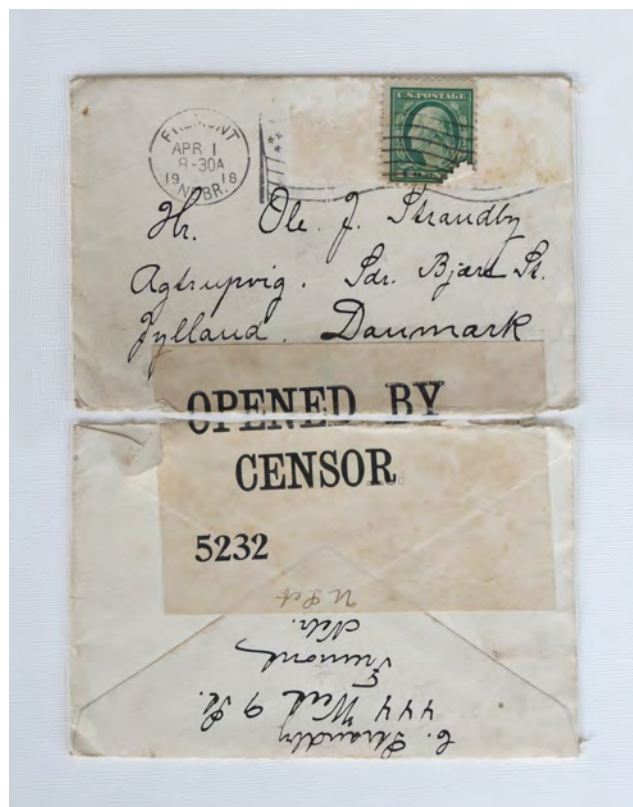 FREMONT
APR 1
8-30A
1918
NEBR.
U.S. POSTAGE
Hr. Ole. J. Strandby
Agtrupvig. Sdr. Bjært St.
Jylland. Danmark
OPENED BY
CENSOR
5232
C. Strandby
444 West 9 St.
Fremont
Nebr.